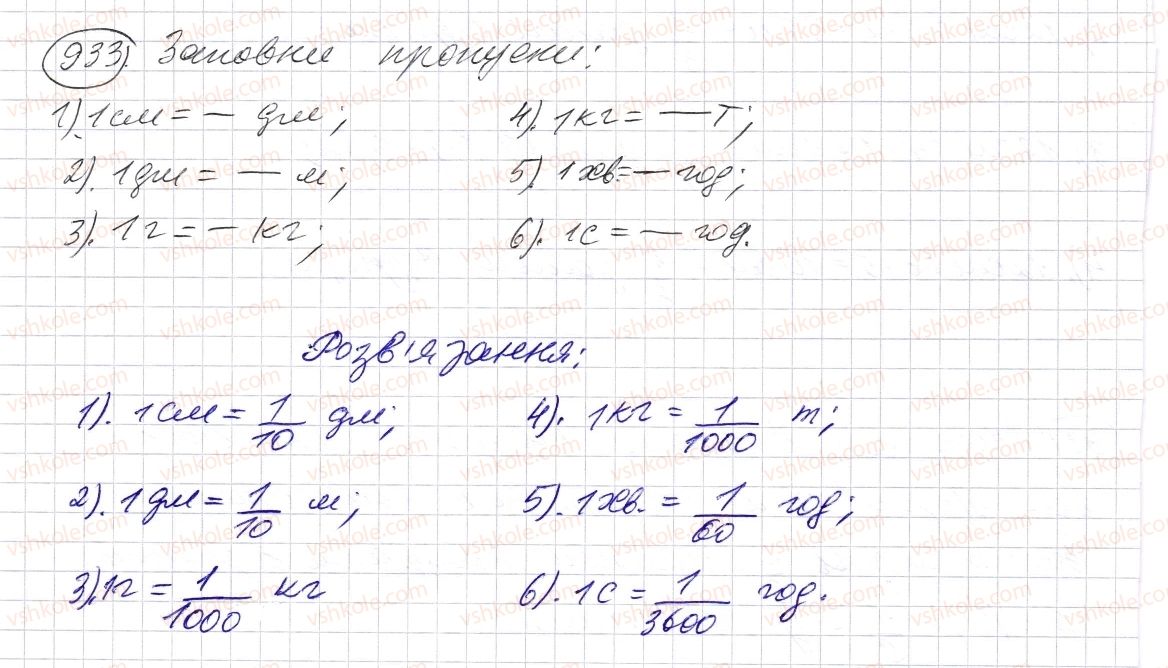 933). Заповни пропуски:
1). 1см = — дм; 4). 1кг = — т;
2). 1дм = — м; 5). 1хв. = — год;
3). 1г = — кг; 6). 1с = — год.
Розв'язання:
1). 1см = 1/10 дм; 4). 1кг = 1/1000 т;
2). 1дм = 1/10 м; 5). 1хв. = 1/60 год;
3). 1г = 1/1000 кг 6). 1с = 1/3600 год.
vshkole.com